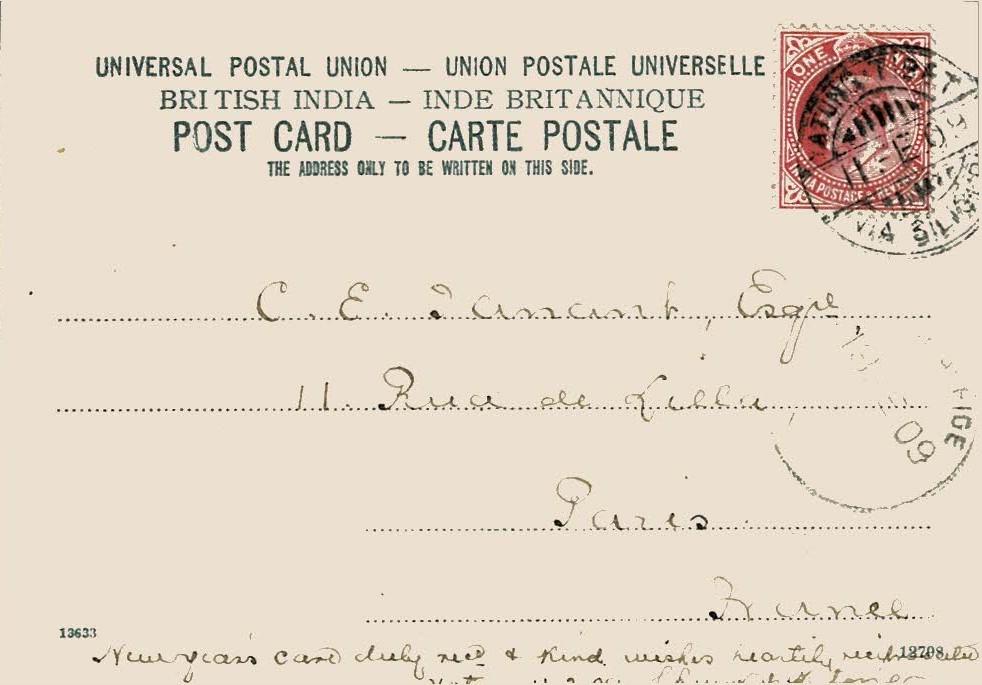 UNIVERSAL POSTAL UNION — UNION POSTALE UNIVERSELLE
BRITISH INDIA — INDE BRITANNIQUE
POST CARD — CARTE POSTALE
THE ADDRESS ONLY TO BE WRITTEN ON THIS SIDE.
ONE
INDIA POSTAGE
TIBET
VIA
C. E. Esqre
11. Rue de Lille
09
Paris
France
13633
New year's card duly recd & kind wishes heartily
12798